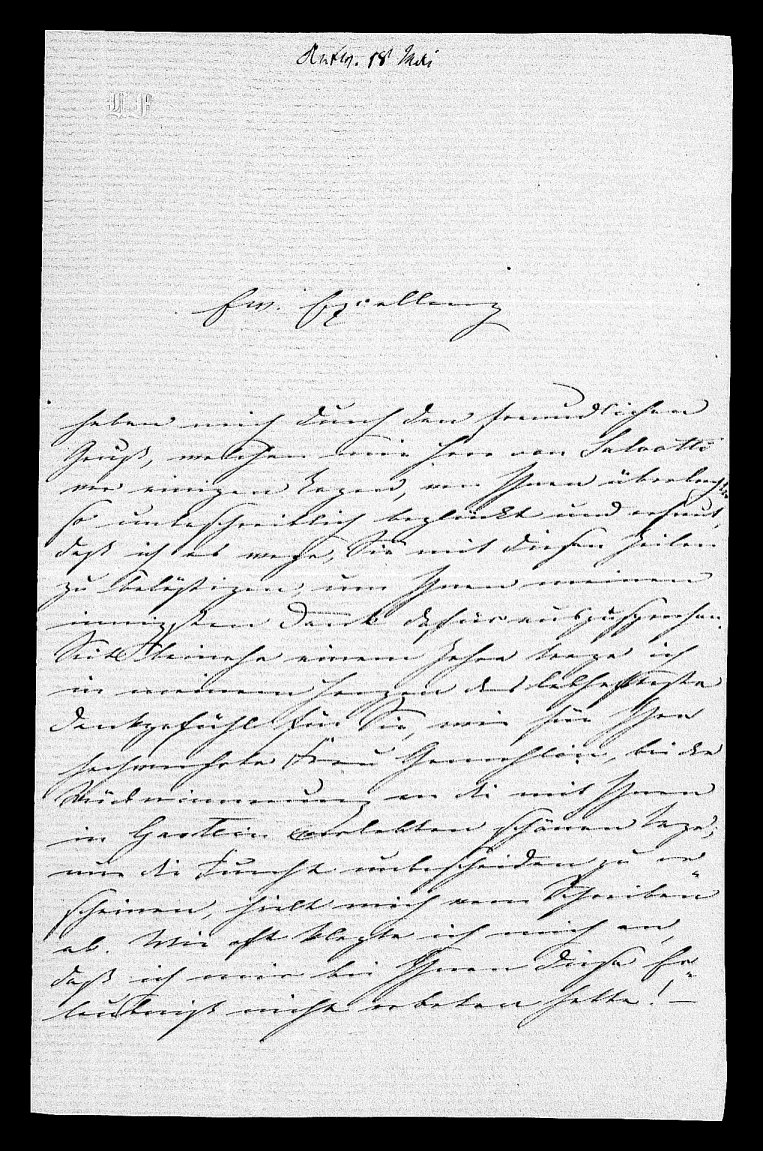 Antw. 18 Mai
Ew. Excellenz
haben mich durch den freundlichen
Gruß, welchen mir Herr von Salvotti
vor einigen Tagen, von Ihnen überbrachte
so unbeschreiblich beglückt und erfreut,
daß ich es wage, Sie mit diesen Zeilen
zu belästigen, um Ihnen meinen
innigsten Dank dafür auszusprechen.
Seit beinahe einem Jahre trage ich
in meinem Herzen das lebhafteste
Dankgefühl für Sie, wie für Ihre
hochverehrte Frau Gemahlin, bei der
Rückerinnerung an die mit Ihnen
in Gastein verlebten schönen Tage;
nur die Furcht unbescheiden zu er
scheinen, hielt mich vom Schreiben
ab. Wie oft klagte ich mich an,
daß ich mir bei Ihnen diese Er-
laubniß nicht erbeten hatte! –